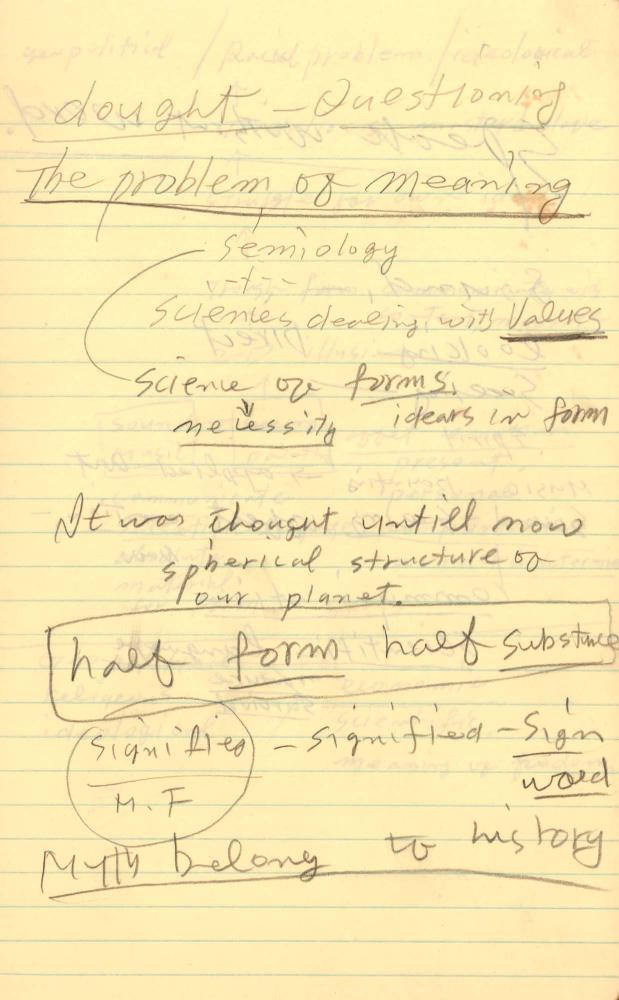 dought - Questioning
The problem of meaning
Semiology
Sciences dealing with Values
Science of forms.
necessity ideas in form
It was thought untill now
spherical structure of
our planet.
half form half substance
Signifier - signified - Sign
M.F word
Myth belong to history